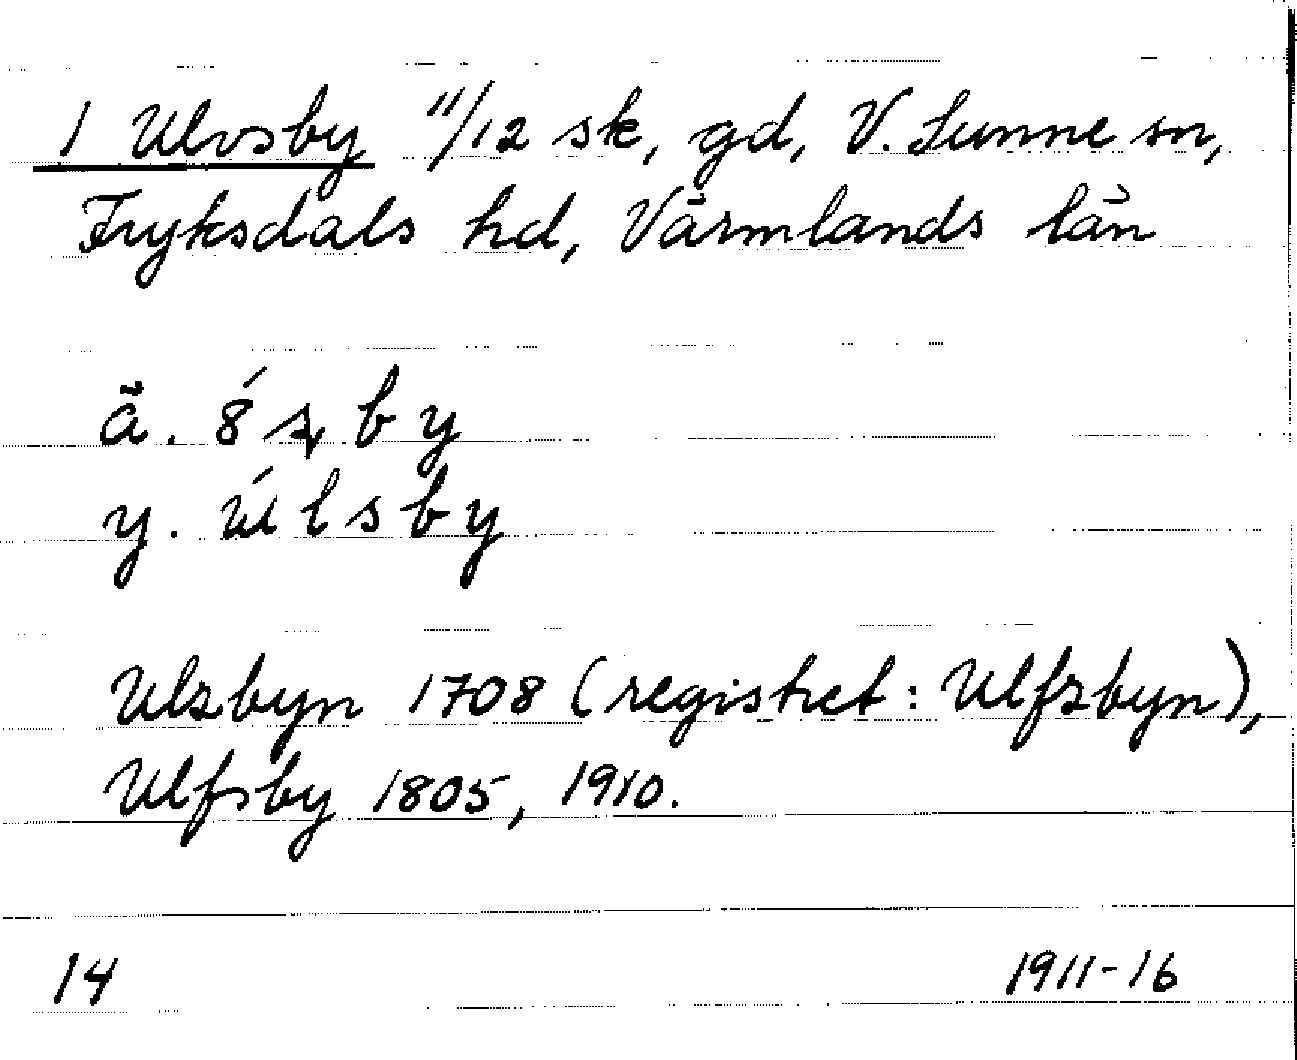 1 Ulvsby 11/12 sk, gd, V. Sunne sn,
Fryksdals hd, Värmlands län
ä. 8́ʂby
y. úlsby
Ulsbyn 1708 (registret: Ulfsbyn),
Ulfsby 1805, 1910.
14 1911-16